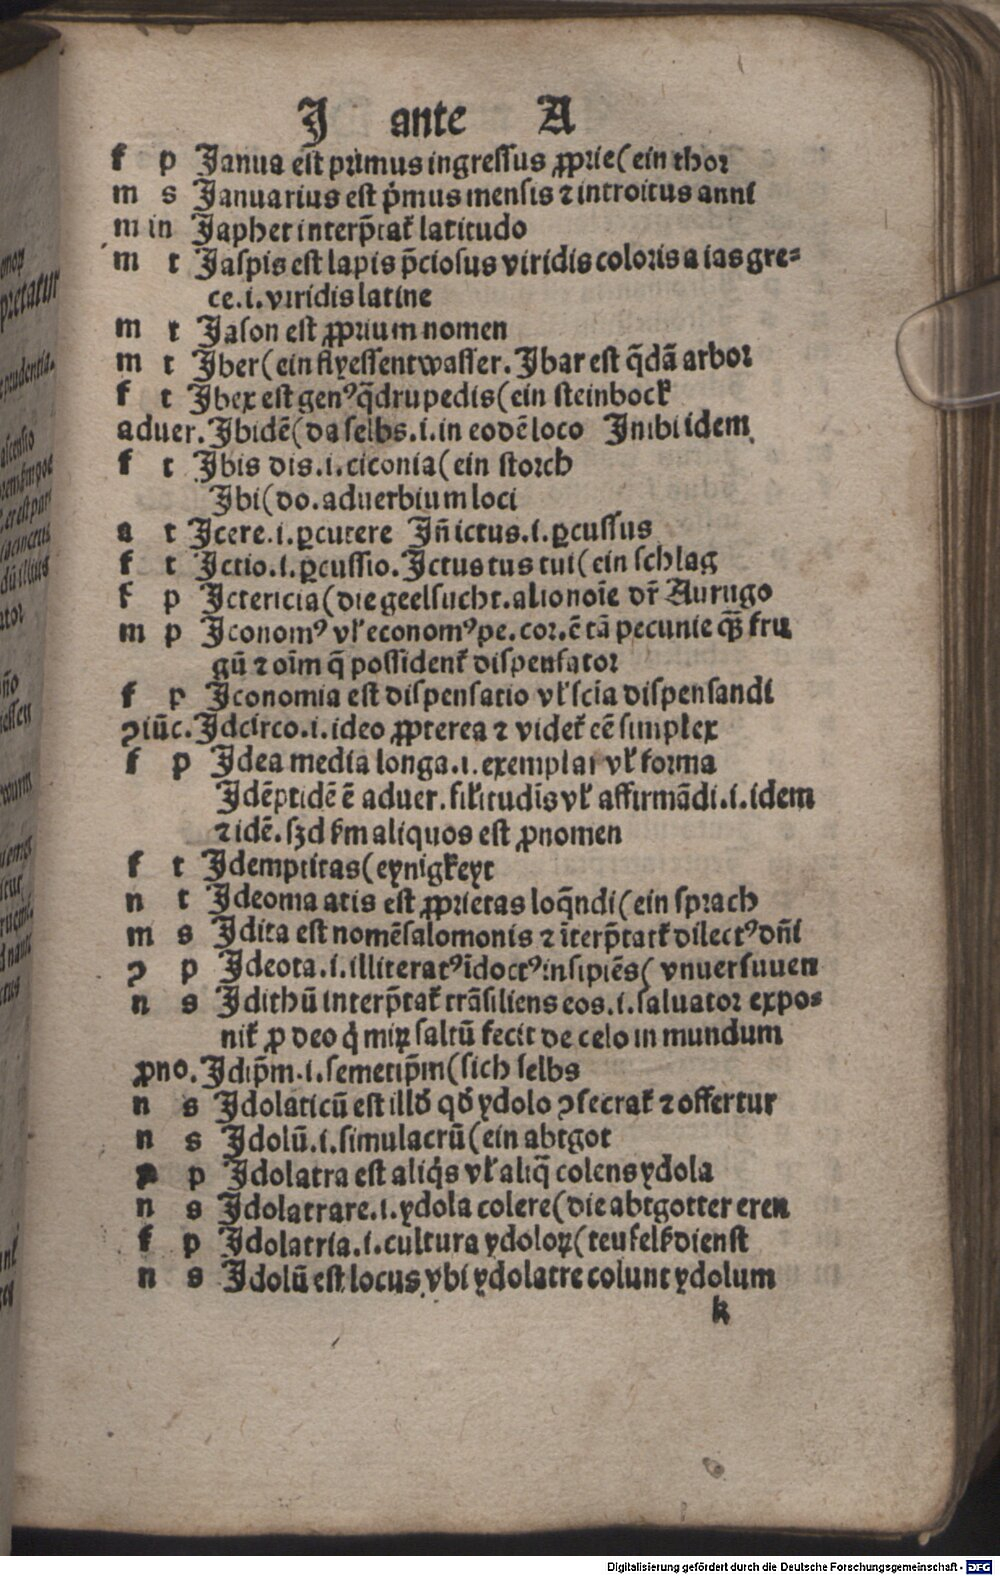 J ante A
f p Janua est primus ingressus ꝓprie( ein thor
m s Januarius est p̃mus mensis ⁊ introitus anni
m in Japhet interp̃tat᷑ latitudo
m t Jaspis est lapis p̃ciosus viridis coloris a ias gre⸗
ce .i. viridis latine
m t Jason est ꝓprium nomen
m t Jber( ein flyessent wasser. Jbar est q̃dã arbor
f t Jbex est gen⁹ q̃drupedis( ein steinbock
aduer. Jbidẽ( da selbs .i. in eodẽ loco Jnibi idem
f t Jbis dis .i. ciconia( ein storch
Jbi( do. aduerbium loci
a t Jcere .i. ꝑcutere Jñ ictus .i. ꝑcussus
f t Jctio .i. ꝑcussio. Jctus tus tui( ein schlag
f p Jctericia( die geelsucht. alio noĩe dr̃ Aurugo
m p Jconom⁹ vl᷑ econom⁹ pe. cor. ẽ tã pecunie q̃ȝ fru
gũ ⁊ oĩm q̃ possident᷑ dispensator
f p Jconomia est dispensatio vl᷑ scĩa dispensandi
ꝯiũc. Jdcirco .i. ideo ꝓpterea ⁊ videt᷑ eẽ simplex
f p Jdea media longa .i. exemplar vl᷑ forma
Jdẽptidẽ ẽ aduer. sil᷑itudĩs vl᷑ affirmãdi .i. idem
⁊ idẽ. sȝd k̃m aliquos est ꝓnomen
f t Jdemptitas( eynigkeyt
n t Jdeoma atis est ꝓprietas loq̃ndi( ein sprach
m s Jdita est nomẽ salomonis ⁊ ĩterp̃tat᷑ dilect⁹ dñi
ꝯ p Jdeota .i. illiterat⁹ ĩdoct⁹ insipiẽs( vnuersuuen
n s Jdithũ interp̃tat᷑ trãsiliens eos .i. saluator expo⸗
nit᷑ ꝓ deo q̇ miꝝ saltũ fecit de celo in mundum
ꝓno. Jdip̃m .i. semetip̃m( sich selbs
n s Jdolaticũ est illď qď ydolo ꝯsecrat᷑ ⁊ offertur
n s Jdolũ .i. simulacrũ( ein abtgot
p Jdolatra est aliq̇s vl᷑ aliq̃ colens ydola
n s Jdolatrare .i. ydola colere( die abtgotter eren
f p Jdolatria .i. cultura ydoloꝝ( teufelßdienst
n s Jdolũ est locus vbi ydolatre colunt ydolum
k
Digitalisierung gefördert durch die Deutsche Forschungsgemeinschaft - DFG